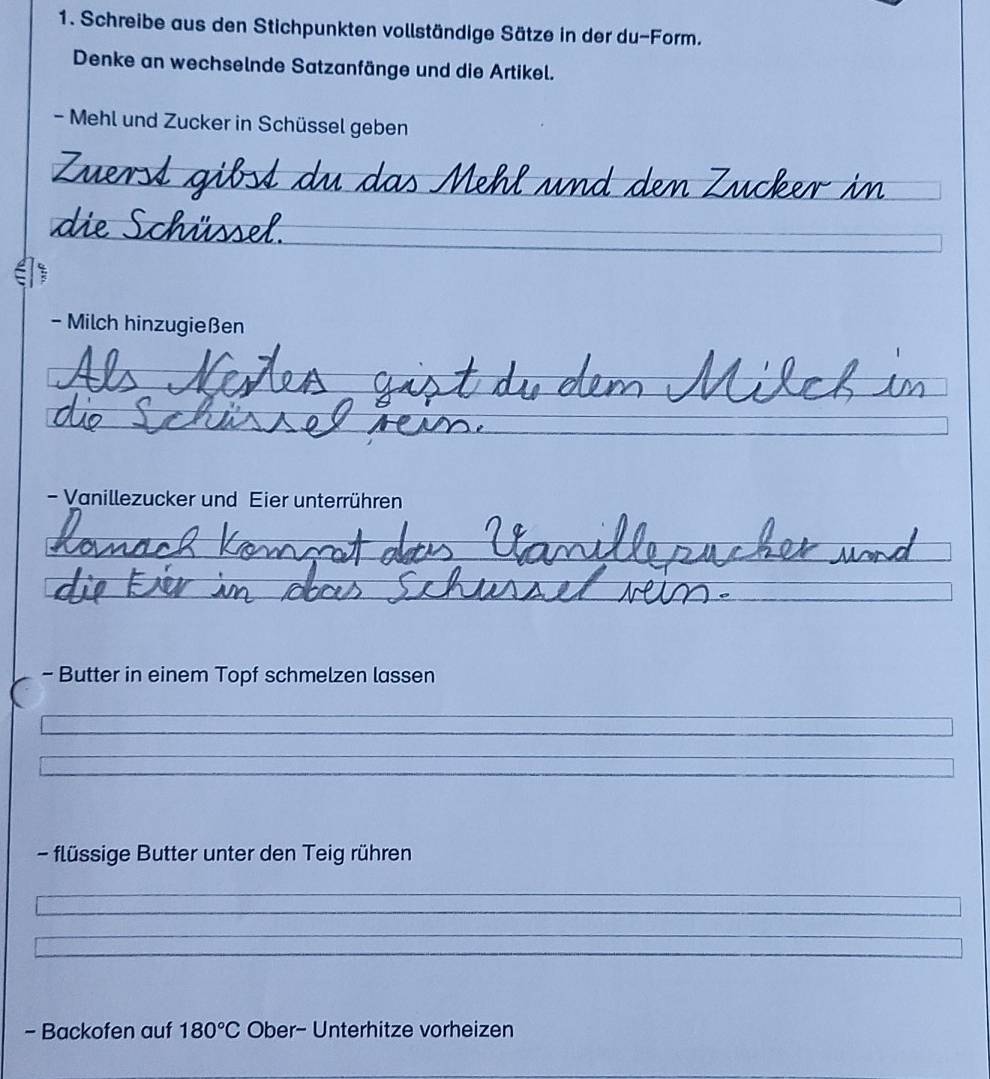 1. Schreibe aus den Stichpunkten vollständige Sätze in der du-Form.
Denke an wechselnde Satzanfänge und die Artikel.
- Mehl und Zucker in Schüssel geben
Zuerst gibst du das Mehl und den Zucker in
die Schüssel.
- Milch hinzugießen
Als Nestes gist du dem Milch in
die Schüssel rein.
- Vanillezucker und Eier unterrühren
Danach kommt das Vanillezucker und
die Eier in das Schussel rein.
- Butter in einem Topf schmelzen lassen
- flüssige Butter unter den Teig rühren
- Backofen auf 180°C Ober- Unterhitze vorheizen